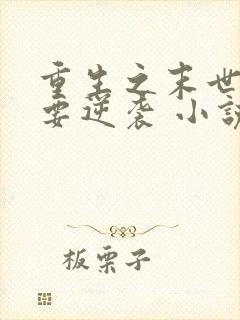 重生之末世
要逆袭 小说
板栗子